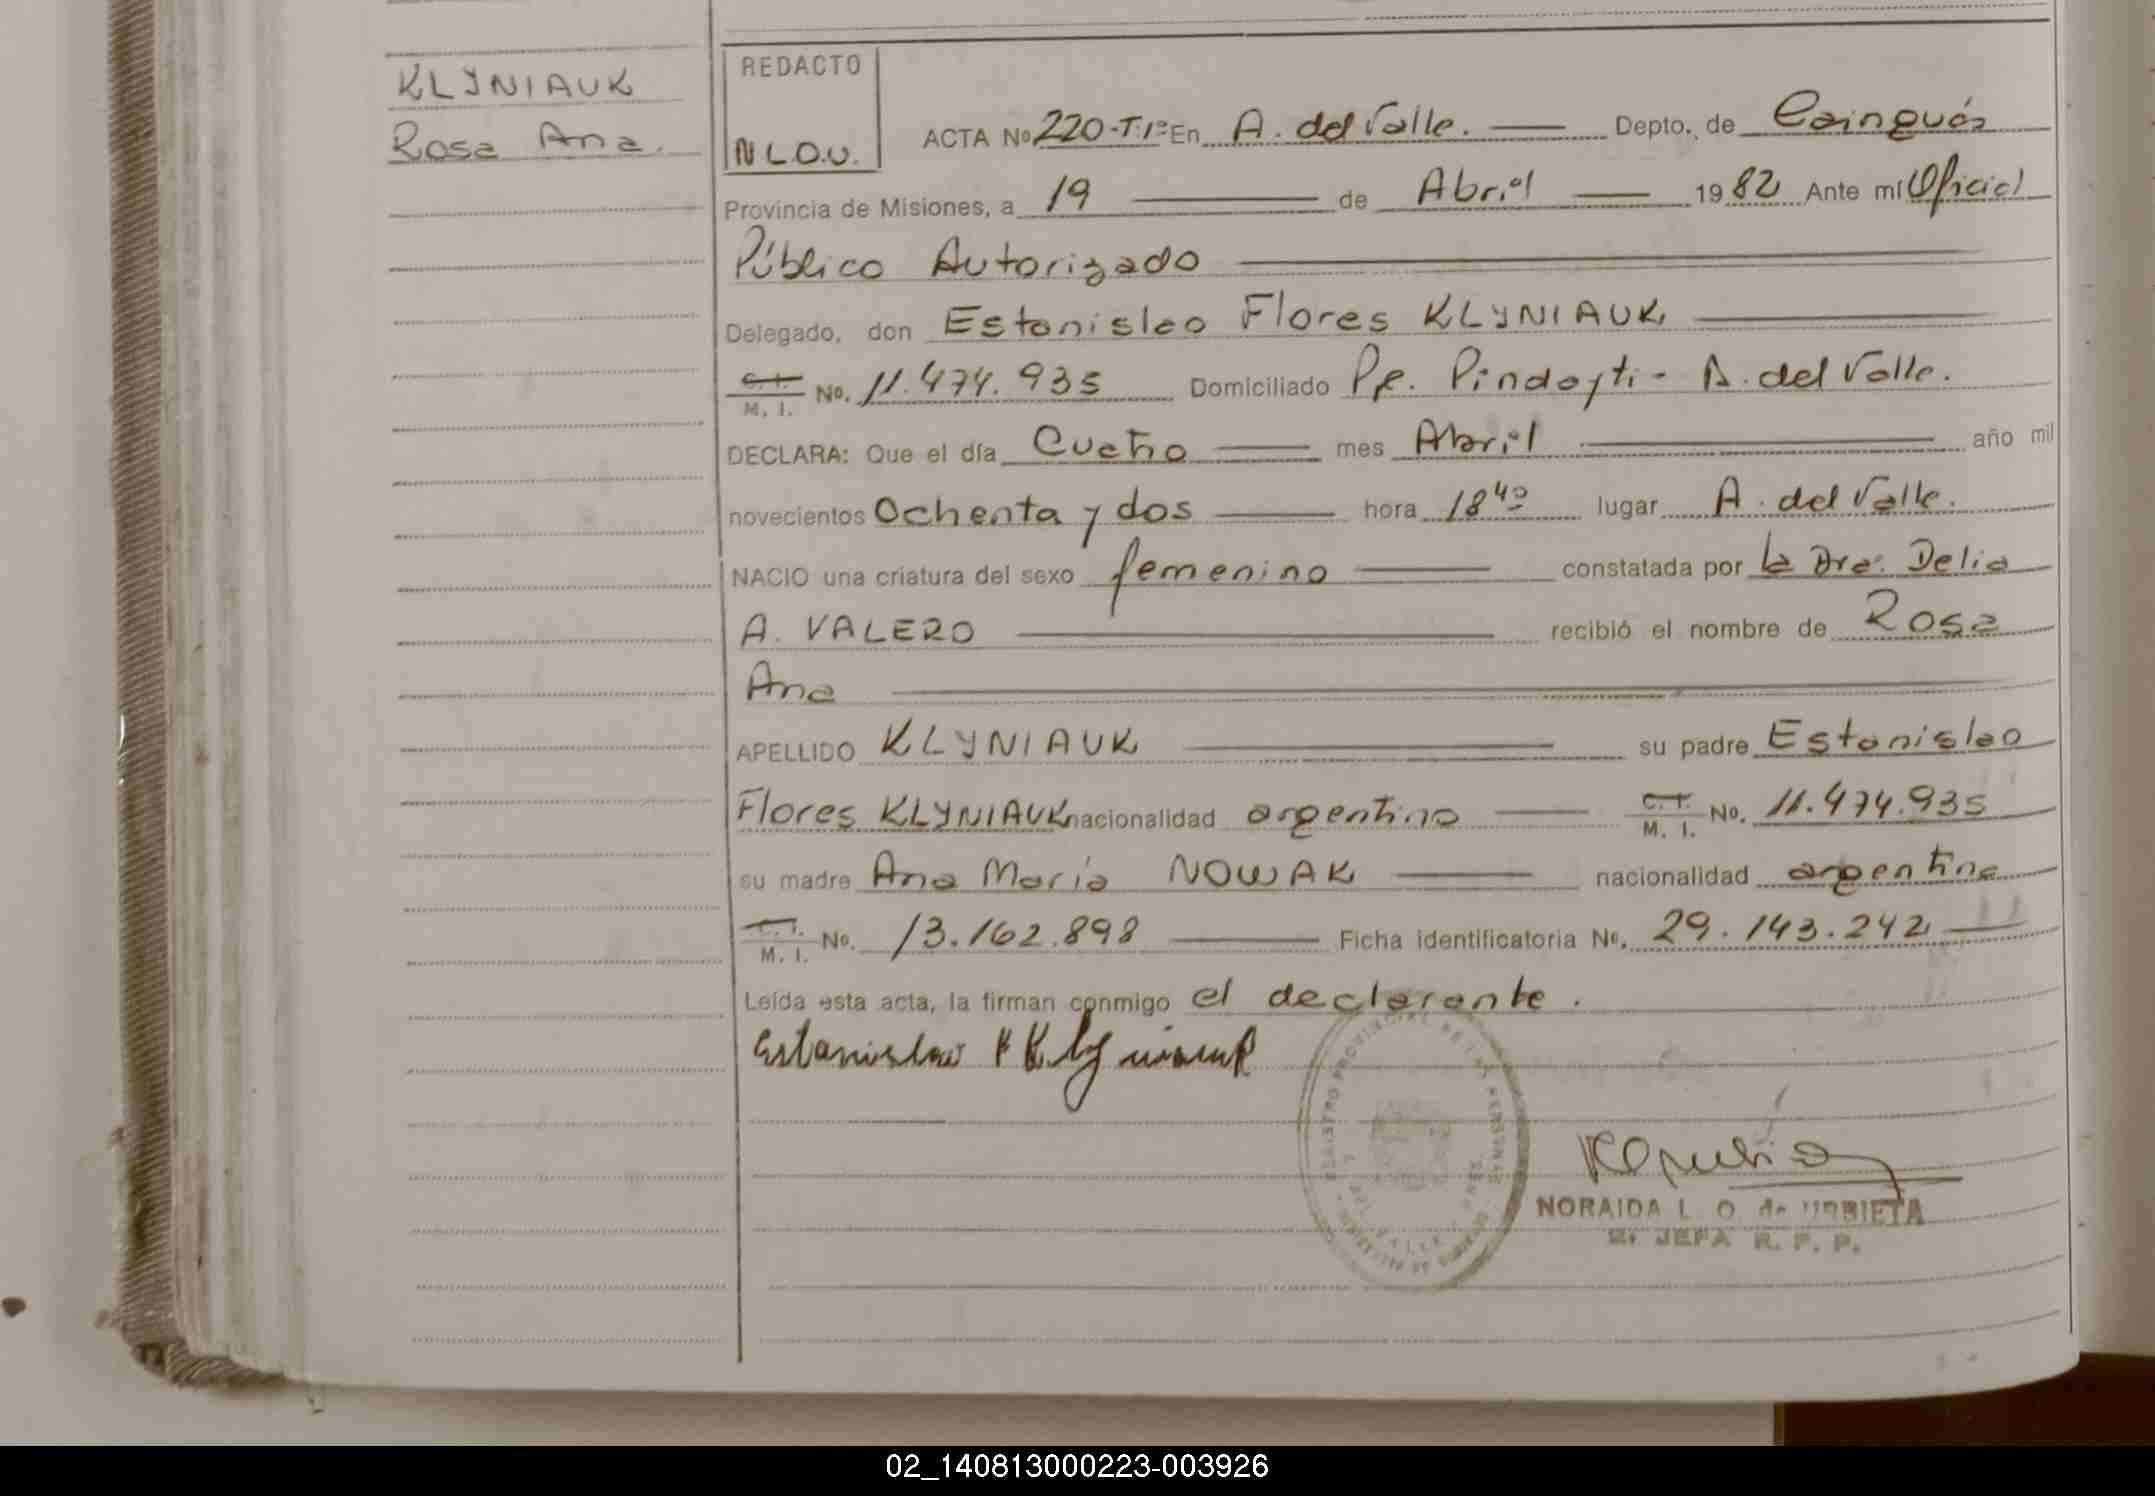 KLYNIAUK
Rosa Ana.
REDACTO
N L O.U.
ACTA No 220-T.1º En A. del Valle. Depto. de Cainguás
Provincia de Misiones, a 19 de Abril 1982 Ante mí Oficial
Público Autorizado
Delegado, don Estanislao Flores KLYNIAUK
C. I.
M. I. No. 11.474.935 Domiciliado Pje. Pindayti - A. del Valle.
DECLARA: Que el día Cuatro mes Abril año mil
novecientos Ochenta y dos hora 18 40 lugar A. del Valle.
NACIO una criatura del sexo femenino constatada por la Dra. Delia
A. VALERO recibió el nombre de Rosa
Ana
APELLIDO KLYNIAUK su padre Estanislao
Flores KLYNIAUK nacionalidad argentino C. I. M. I. No. 11.474.935
su madre Ana María NOWAK nacionalidad argentina
C. I.
M. I. No. 13.162.898 Ficha identificatoria No. 29.143.242
Leída esta acta, la firman conmigo el declarante.
Estanislao F Klyniauk
REGISTRO PROVINCIAL DE LAS PERSONAS
DEL VALLE
NORAIDA L. O. de URBIETA
JEFA R. P. P.
02_140813000223-003926